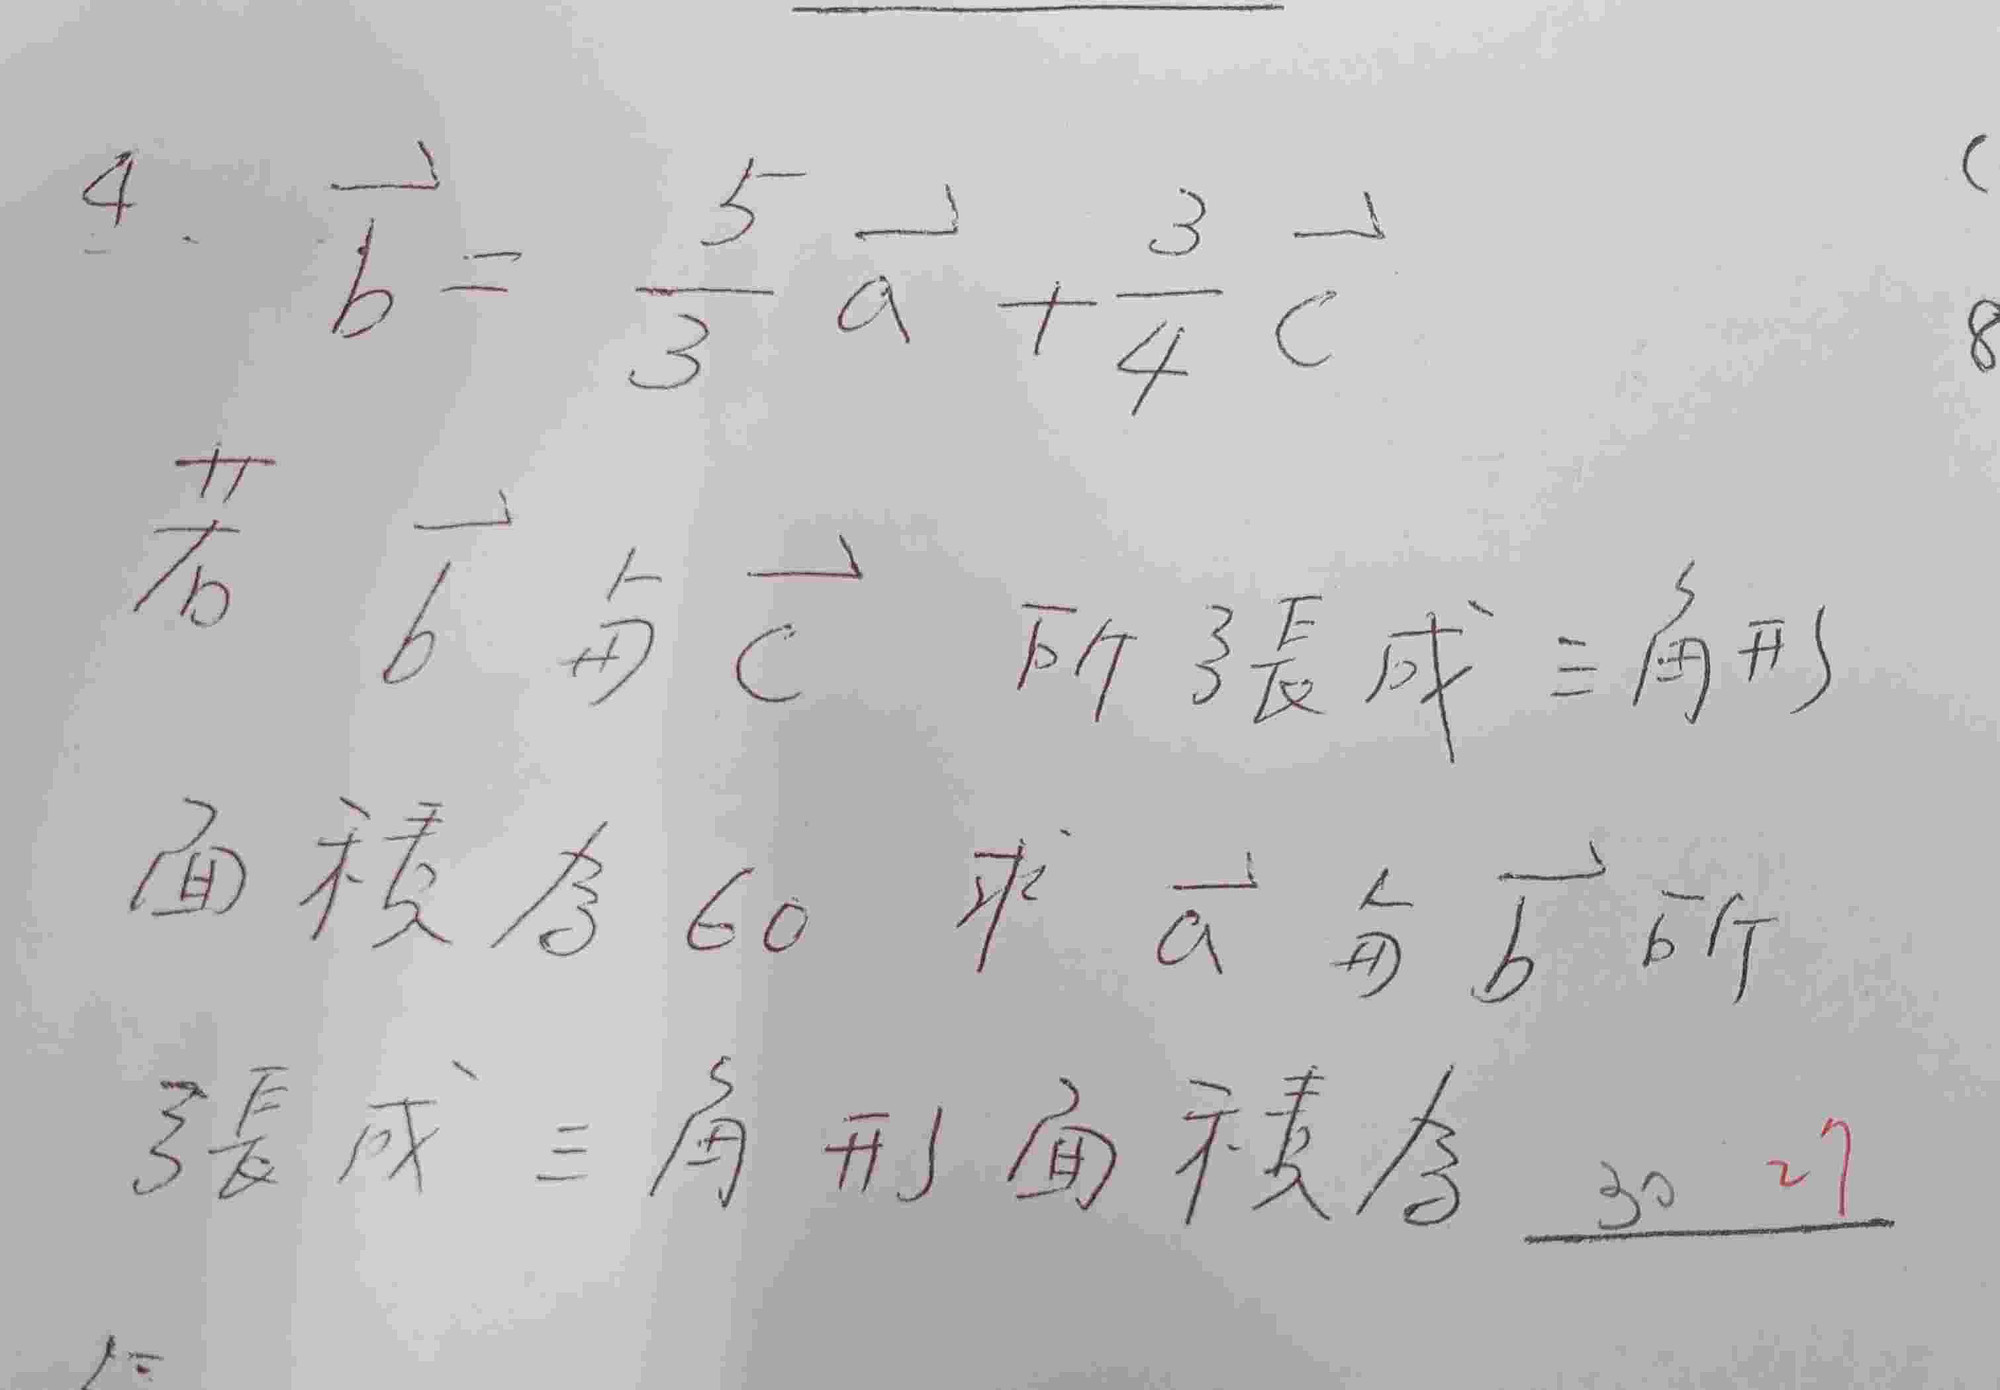 4. b⃗ = 5/3 a⃗ + 3/4 c⃗
若 b⃗ 與 c⃗ 所張成三角形
面積為 60 求 a⃗ 與 b⃗ 所
張成三角形面積為 30 27
(
8